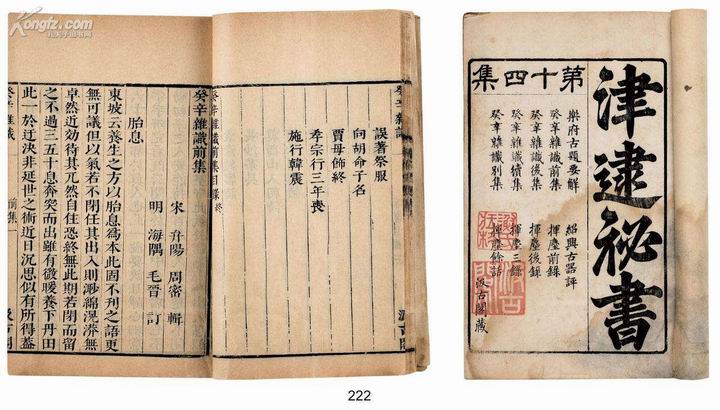 Kongfz.com
孔夫子旧书网
誤著祭服
向胡命子名
賈母飾終
季宗行三年喪
施行韓震
癸辛雜識前集目錄終
癸辛雜識前集
宋 弁陽 周密 輯
明 海隅 毛晉 訂
胎息
東坡云養生之方以胎息爲本此固不刊之語更
無可議但以氣若不閉任其出入則渺綿滉漭無
卓然近効待其兀然自住恐終無此期若閉而留
之不過三五十息奔突而出雖有微暖養下丹田
此一於迂決非延世之術近日沉思似有所得蓋
癸辛雜識 前集
津逮祕書
第十四集
樂府古題要解 紹興古器評
癸辛雜識前集 揮麈前錄
癸辛雜識後集 揮麈後錄
癸辛雜識續集 揮麈三錄
癸辛雜識別集 揮麈餘話
汲古閣藏
222